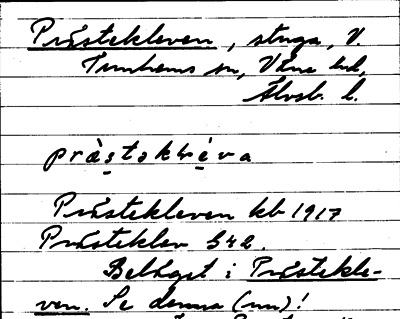 Prästekleven, stuga, V.
Tunhems sn, Väne hd,
Älvsb. l.
Prästekleven kb 1917
Prästeklev 342.
Beläget i Prästekle-
ven. Se denna (nn)!